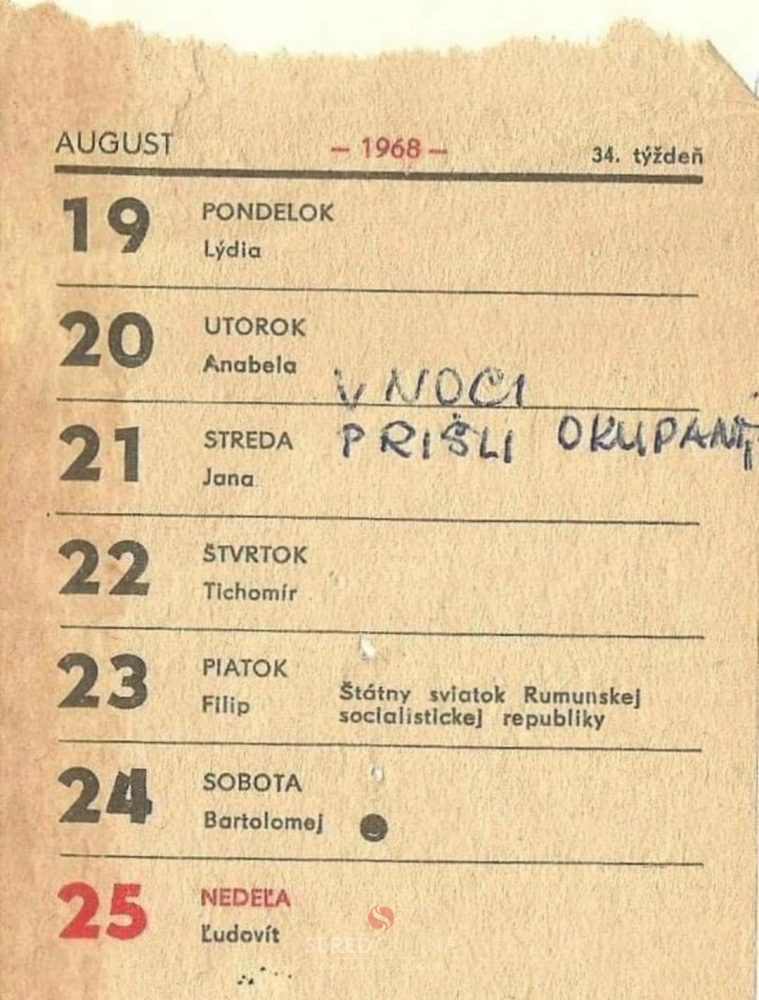 AUGUST – 1968 – 34. týždeň
19 PONDELOK
Lýdia
20 UTOROK
Anabela
V NOCI
21 STREDA PRIŠLI OKUPANTI
Jana
22 ŠTVRTOK
Tichomír
23 PIATOK
Filip Štátny sviatok Rumunskej
socialistickej republiky
24 SOBOTA
Bartolomej
25 NEDEĽA
Ľudovít